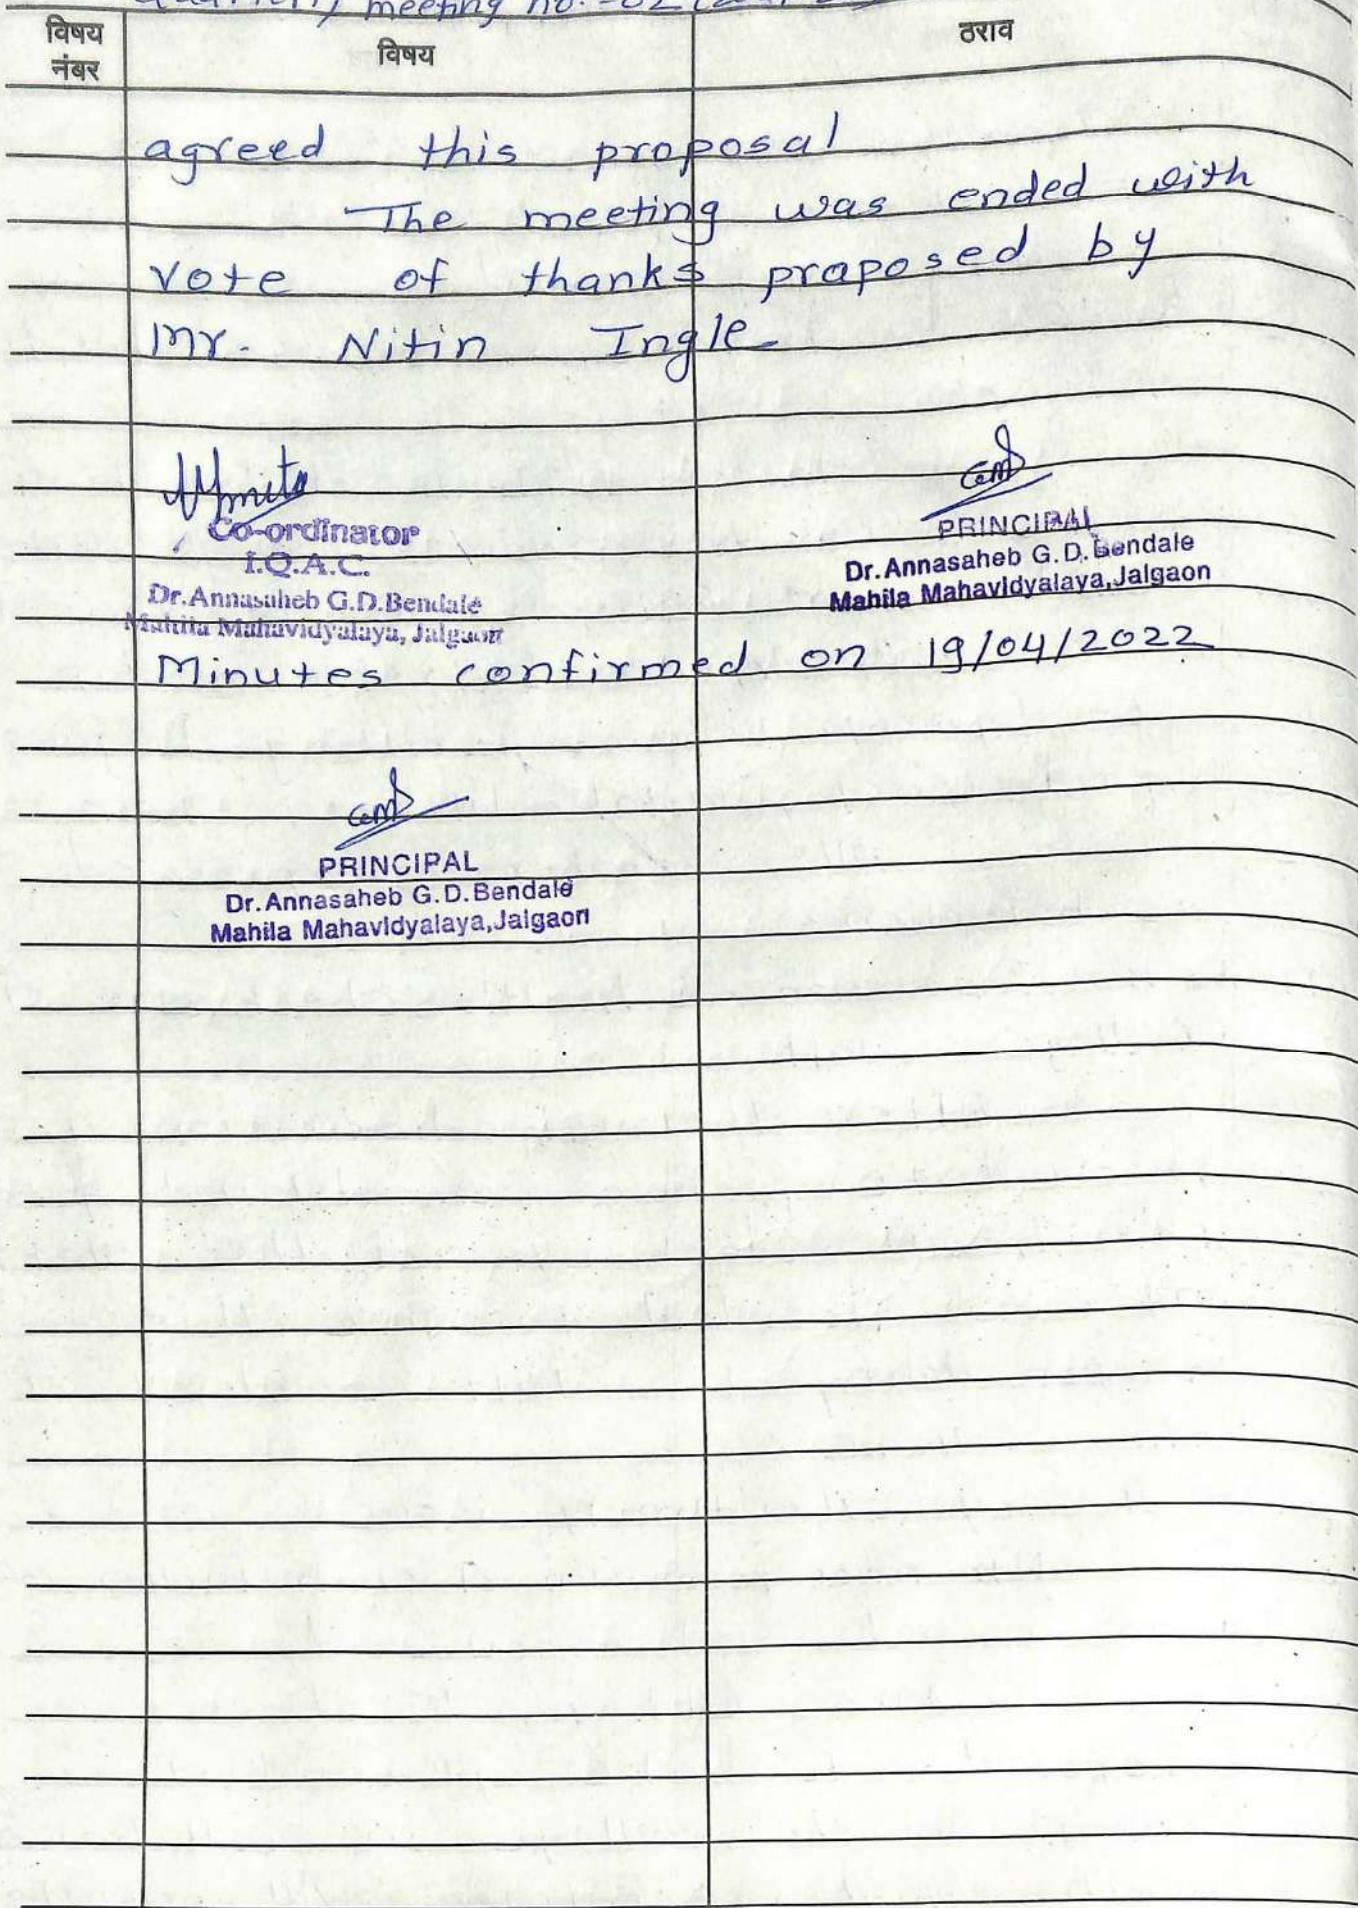 meeting no. -02
विषय नंबर
विषय
ठराव
agreed this proposal
The meeting was ended with
vote of thanks praposed by
Mr. Nitin Ingle.
Co-ordinator
I.Q.A.C.
Dr. Annasaheb G.D. Bendale
Mahila Mahavidyalaya, Jalgaon
PRINCIPAL
Dr. Annasaheb G.D. Bendale
Mahila Mahavidyalaya, Jalgaon
Minutes confirmed on 19/04/2022
PRINCIPAL
Dr. Annasaheb G.D. Bendale
Mahila Mahavidyalaya, Jalgaon